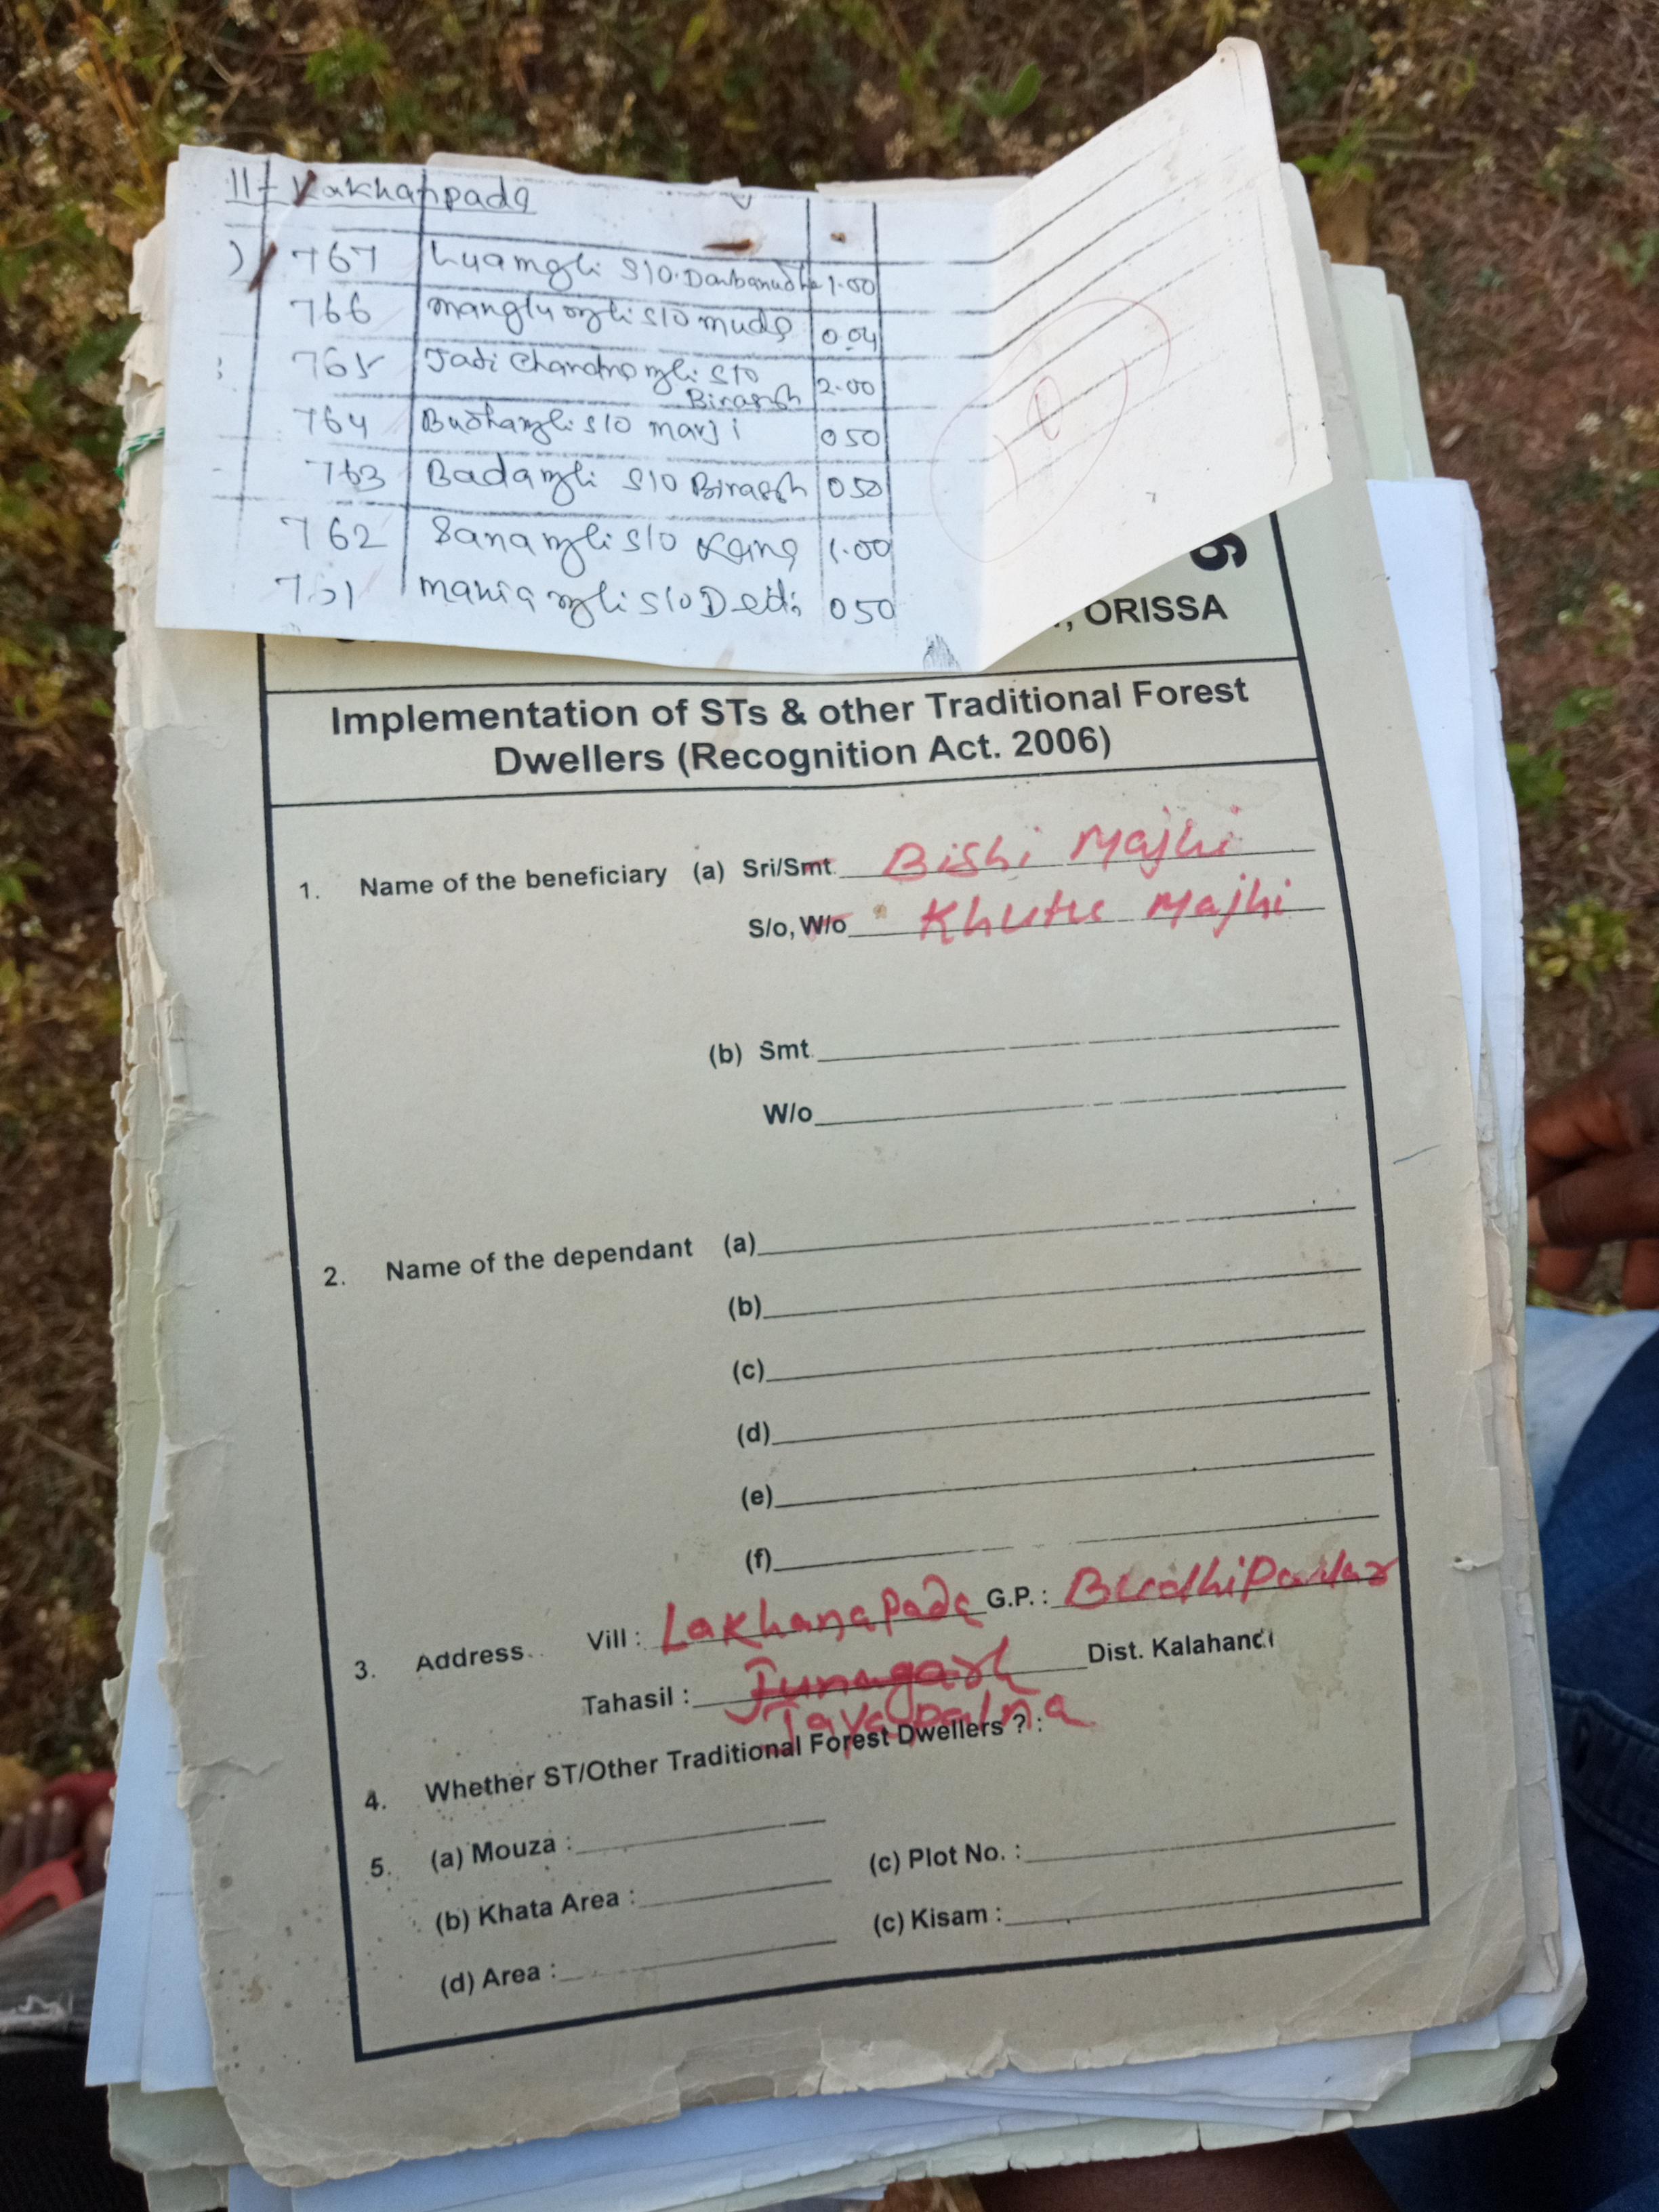 11- Lakhanpada
767 Luamajhi S/O. Darbanudha 1.00
766 manglu majhi s/o muda 0.04
765 Jadi Chandra majhi S/O Birasigh 2.00
764 Budhamajhi S/O marji 0 50
763 Badamajhi S/O Birasigh 0 50
762 Sanamajhi S/O 1.00
761 mania majhi S/O 0 50
9
, ORISSA
Implementation of STs & other Traditional Forest
Dwellers (Recognition Act. 2006)
1. Name of the beneficiary (a) Sri/Smt. Bishi Majhi
S/o, W/o Khutu Majhi
(b) Smt.
W/o
2. Name of the dependant (a)
(b)
(c)
(d)
(e)
(f)
3. Address Vill : Lakhanapada G.P. : BudhiPadar
Tahasil : Junagarh Dist. Kalahandi
Jayapatna
4. Whether ST/Other Traditional Forest Dwellers ? :
5. (a) Mouza : (c) Plot No. :
(b) Khata Area : (c) Kisam :
(d) Area :